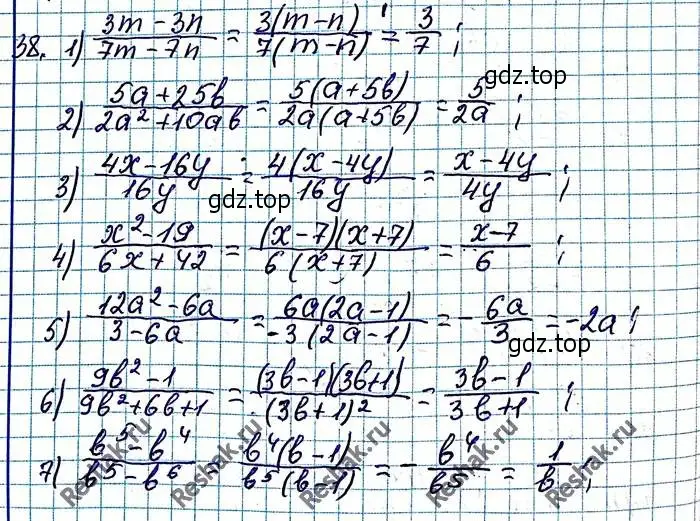 38. 1) (3m - 3n)/(7m - 7n) = 3(m - n)/7(m - n) = 3/7 ;
gdz.top
2) (5a + 25в)/(2a² + 10aв) = 5(a + 5в)/2a(a + 5в) = 5/2a ;
3) (4x - 16y)/16y = 4(x - 4y)/16y = (x - 4y)/4y ;
gdz.top
gdz.top
4) (x² - 19)/(6x + 42) = (x - 7)(x + 7)/6(x + 7) = (x - 7)/6 ;
5) (12a² - 6a)/(3 - 6a) = 6a(2a - 1)/-3(2a - 1) = - 6a/3 = -2a ;
gdz.top
6) (9в² - 1)/(9в² + 6в + 1) = (3в - 1)(3в + 1)/(3в + 1)² = (3в - 1)/(3в + 1) ;
7) (в⁵ - в⁴)/(в⁵ - в⁶) = в⁴(в - 1)/в⁵(в - 1) = - в⁴/в⁵ = 1/в ;
Reshak.ru
Reshak.ru
Reshak.ru
Reshak.ru